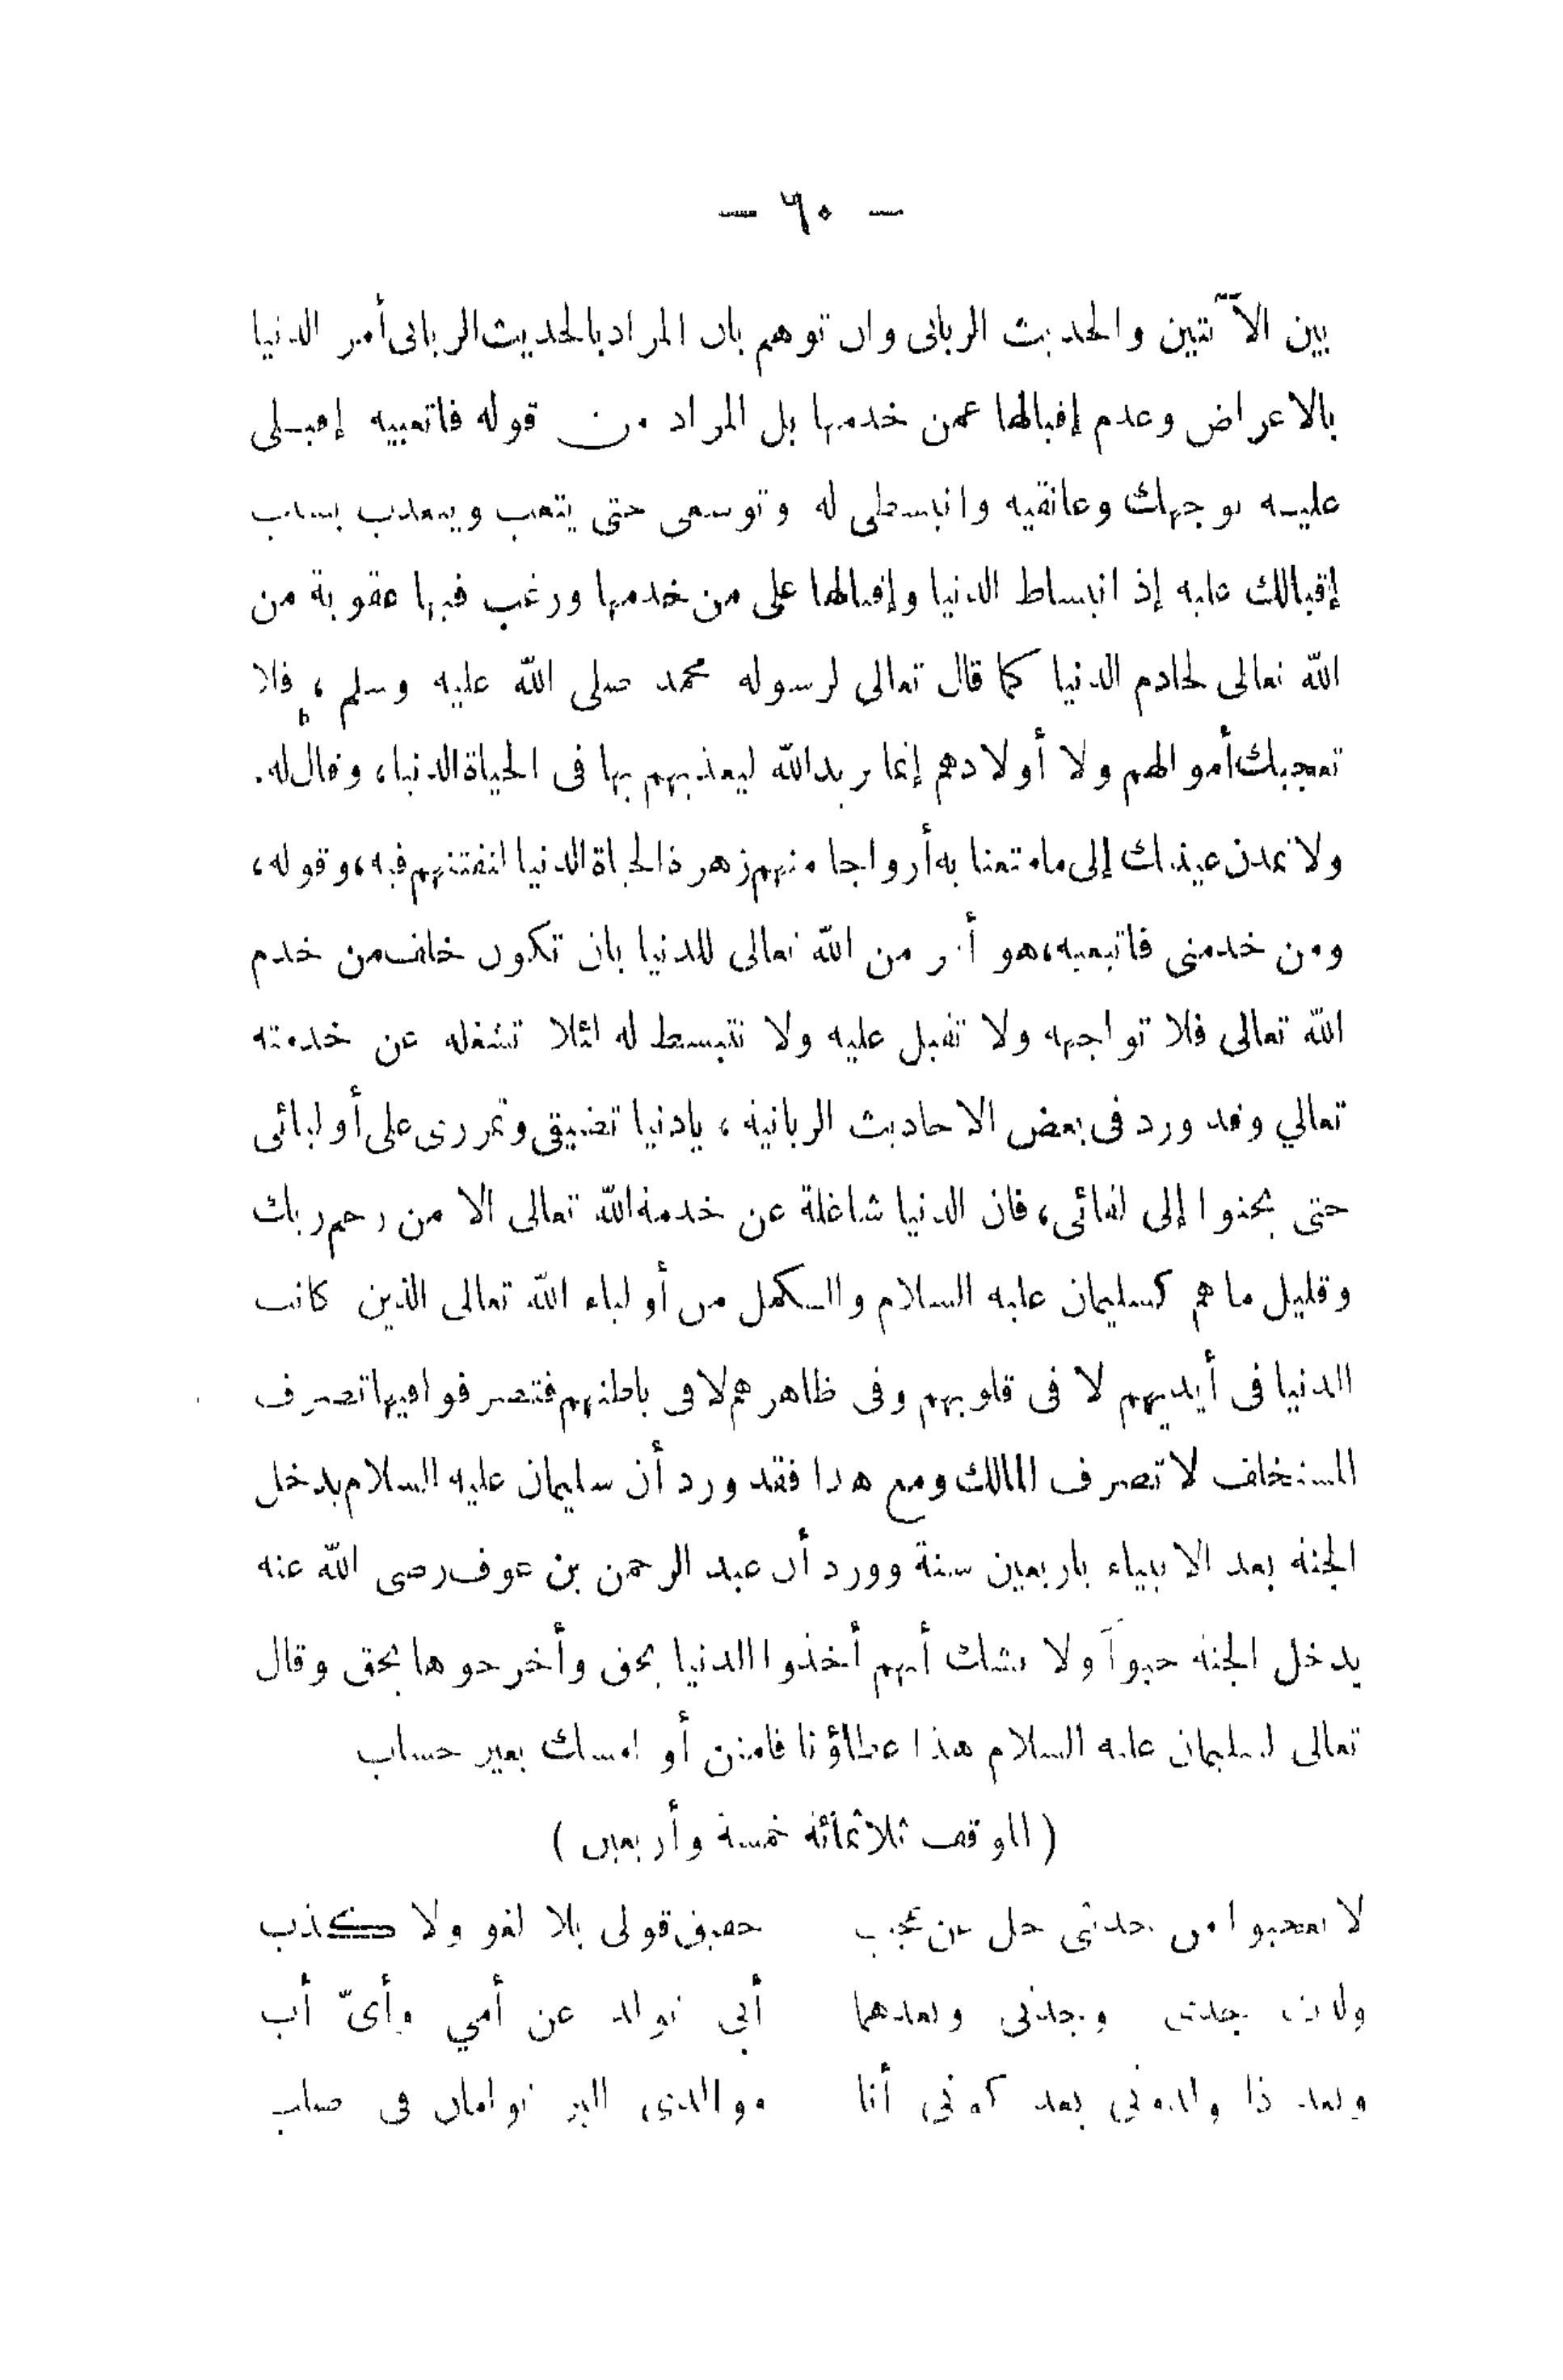 — ٦٠ —
بين الآيتين والحديث الربانى وان توهم بان المراد بالحديث الربانى أمر الدنيا
بالاعراض وعدم إقبالها عمن خدمها بل المراد من قوله فاتعبيه إقبـلى
عليـه بوجهك وعانقيه وانبسطى له وتوسعى حتى يتعب ويتعذب بسبب
إقبالك عليه إذ انبساط الدنيا وإقبالها على من خدمها ورغب فيها عقوبة من
الله تعالى لخادم الدنيا كما قال تعالى لرسوله محمد صلى الله عليه وسلم ، فلا
تعجبك أموالهم ولا أولادهم إنما يريد الله ليعذبهم بها فى الحياة الدنيا، وقال له.
ولا تمدن عينيك إلى ما متعنا به أزواجا منهم زهرة الحياة الدنيا لنفتنهم فيه، وقوله،
ومن خدمنى فاتبعيه، هو أمر من الله تعالى للدنيا بان تكون خلف من خدم
الله تعالى فلا تواجهه ولا تقبل عليه ولا تنبسط له لئلا تشغله عن خدمته
تعالي وقد ورد فى بعض الاحاديث الربانية ، يادنيا تضيقى وتمررى على أوليائى
حتى يحنوا إلى لقائى، فان الدنيا شاغلة عن خدمة الله تعالى الا من رحم ربك
وقليل ما هم كسليمان عليه السلام والكمل من أولياء الله تعالى الذين كانت
الدنيا فى أيديهم لا فى قلوبهم وفى ظاهرهم لا فى باطنهم فتصرفوا فيها تصرف
المستخلف لا تصرف المالك ومع هذا فقد ورد أن سليمان عليه السلام يدخل
الجنة بعد الانبياء باربعين سنة وورد أن عبد الرحمن بن عوف رضى الله عنه
يدخل الجنة حبواً ولا شك أنهم أخذوا الدنيا بحق وأخرجوها بحق وقال
تعالى لسليمان عليه السلام هذا عطاؤنا فامنن أو امسك بغير حساب
( الموقف ثلاثمائة خمسة وأربعين )
لا تعجبوا من حديثى جل عن عجب حقيق قولى بلا لغو ولا كذب
ولدت جدتى وجدتى وبعدهما أبي تولد عن أمي وأىّ أب
وبعد ذا ولدونى بعد كونى أنا ووالدى البر توامان فى صلب